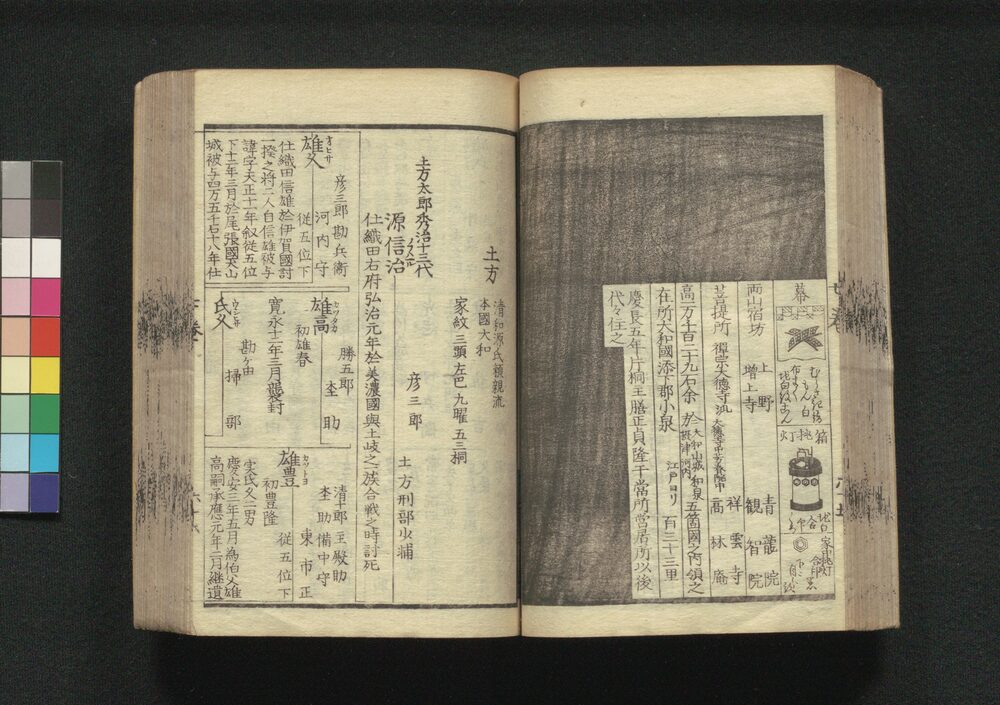 幕
箱
挑灯
両山宿坊
上野
増上寺
青龍院
観智院
菩提所
祥雲寺
高林庵
高一万千百二十九石余
五箇国之内領之
在所大和國添下郡小泉
江戸ヨリ
百三十三里
慶長五年片桐主膳正貞隆于當所営居所以後
代々住之
土方
清和源氏頼親流
本國大和
家紋三頭左巴九曜五三桐
土方太郎秀治十三代
源信治
彦三郎
土方刑部少輔
仕織田右府弘治元年於美濃國與土岐之一族合戦之時討死
雄久
彦三郎
勘兵衛
河内守
従五位下
仕織田信雄於伊賀國討
一揆之将二人自信雄被与
諱字天正十一年叙従五位
下十二年三月於尾張國犬山
城被与四万五千石十八年仕
雄高
カツタカ
勝五郎
杢助
初雄春
寛永十二年三月襲封
氏久
ウジヒサ
勘ケ由
掃部
雄豊
カツトヨ
清十郎
主殿助
杢助
備中守
東市正
従五位下
初豊隆
実氏久二男
慶安三年五月為伯父雄
高嗣承應元年二月継遺